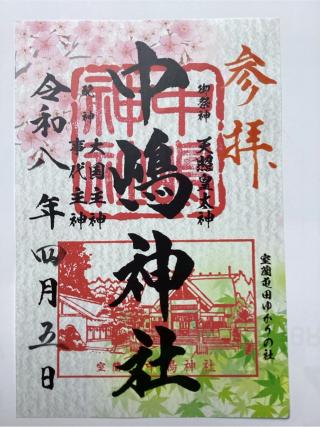 参拝
御祭神 天照皇大神
中嶋神社
配神 大国主神
事代主神
令和八年四月五日
室蘭起田ゆかりの社
中嶋神社
室蘭 中嶋神社